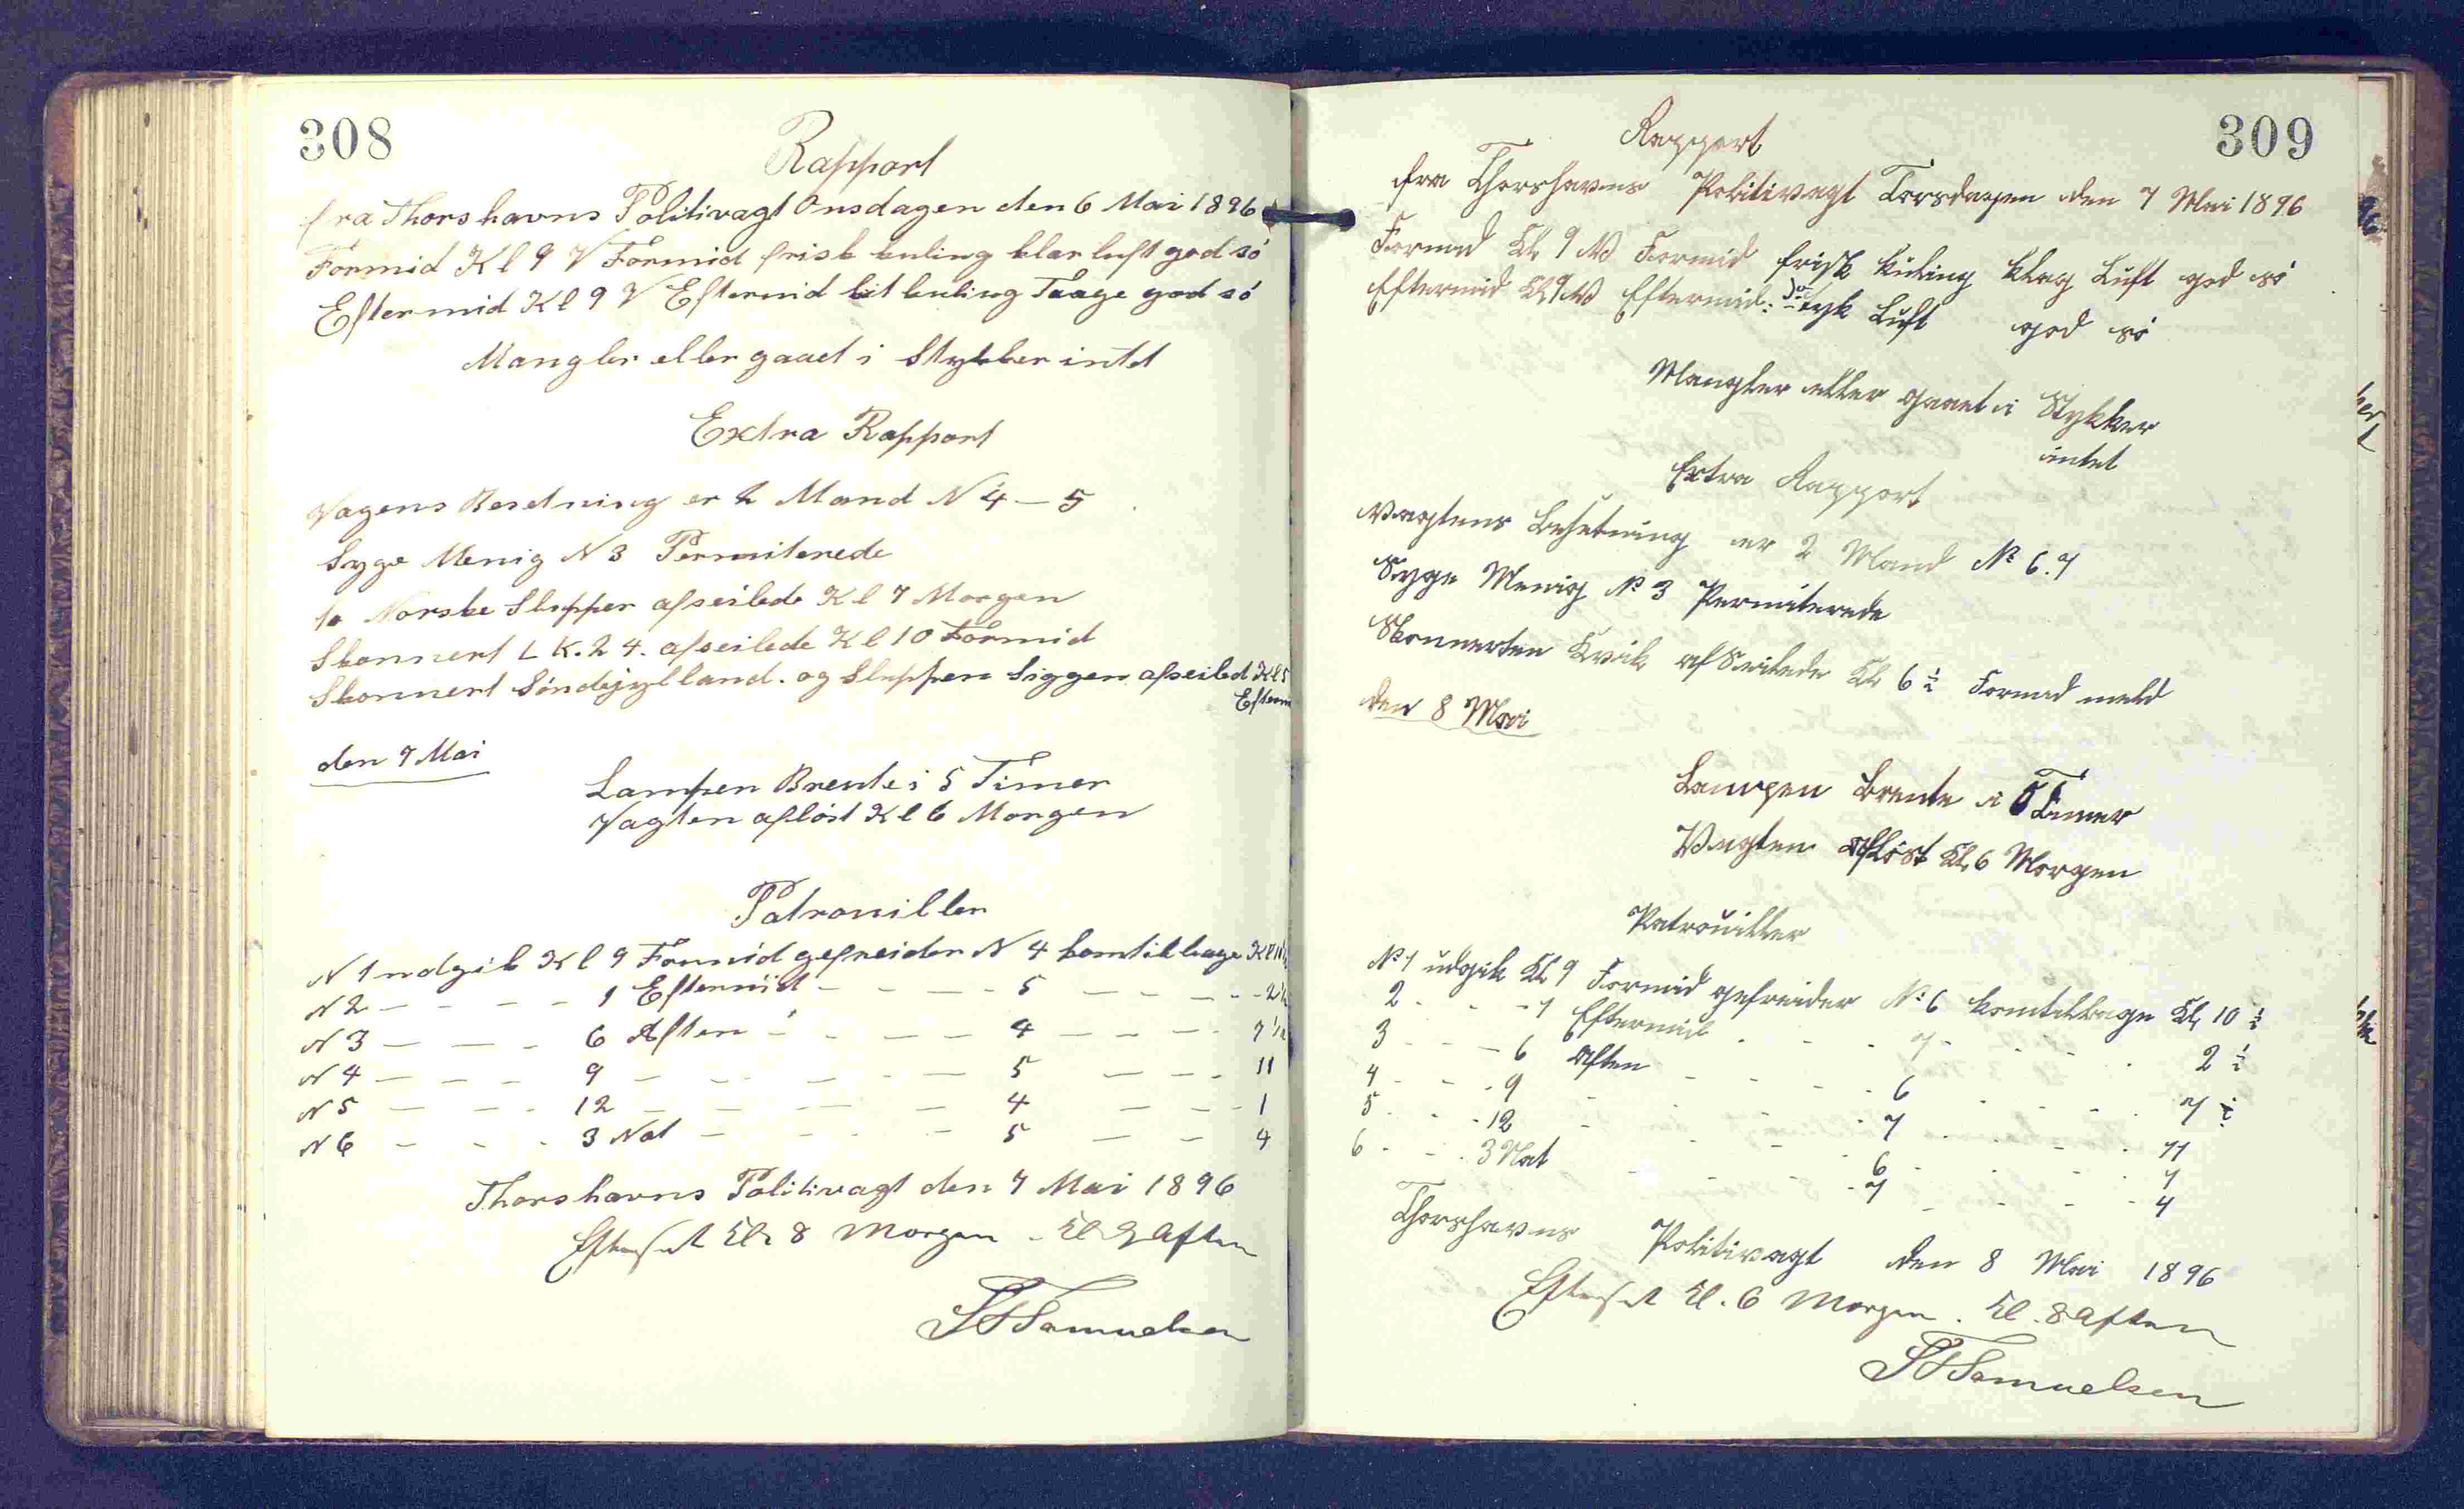 308
Rapport
fra Thorshavns Politivagt Onsdagen den 6 Mai 1896
Formid Kl 9 V Formid frisk kuling klar luft god só
Eftermid Kl 9 V Eftermid lit kuling Taage god só
Mangler eller gaaet i Stykker intet
Extra Rapport
Vagens Besetning er 2 Mand N 4 — 5
Syge Menig N 3 Permiterede
10 Norske Slupper afseilede Kl 7 Morgen
Skonnert L K. 24. afseilede Kl 10 Formid
Skonnert Söndejylland. og Sluppen Siggen afseiled Kl 5
Efterm
den 7 Mai
Lampen Brente i 5 Timer
Vagten aflöst Kl 6 Morgen
Patrouiller
N 1 udgik Kl 9 Formid gefreider N 4 komtilbage Kl 10½
N 2 — — — — 1 Eftermid — — — — 5 — — — — 2½
N 3 — — — 6 Aften — — — — 4 — — — 7½
N 4 — — — 9 — — — — — 5 — — — 11
N 5 — — — 12 — — — — 4 — — — 1
N 6 — — — 3 Nat — — — — 5 — — 4
Thorshavns Politivagt den 7 Mai 1896
Efterset Kl. 8 Morgen - Kl. 9 Aften
Samuelsen
309
Rapport
fra Thorshavns Politivagt Torsdagen den 7 Mai 1896
Formid Kl 9 NV Formid frisk kuling klag Luft god só
Eftermid Kl 9 NV Eftermid: tyk Luft god só
Mangler eller gaaet i Stykker
intet
Extra Rapport
Vagtens Besetning er 2 Mand No 6. 7
Syge Menig No 3 Permiterede
Skonnerten Kvik afseilede Kl 6½ Formid
den 8 Mai
Lampen Brente i 5 Timer
Vagten aflöst Kl 6 Morgen
Patrouiller
No 1 udgik Kl 9 Formid gefreider No 6 komtilbage Kl 10½
2 - - - 1 Eftermid - - - 7 - - - 2½
3 - - - 6 Aften - - - 6 - - - 7½
4 - - - 9 - - - 7 - - - 11
5 - - - 12 - - - 6 - - - 1
6 - - - 3 Nat - - - 7 - - - 4
Thorshavns Politivagt den 8 Mai 1896
Efterset Kl. 6 Morgen. Kl. 8 Aften
Samuelsen